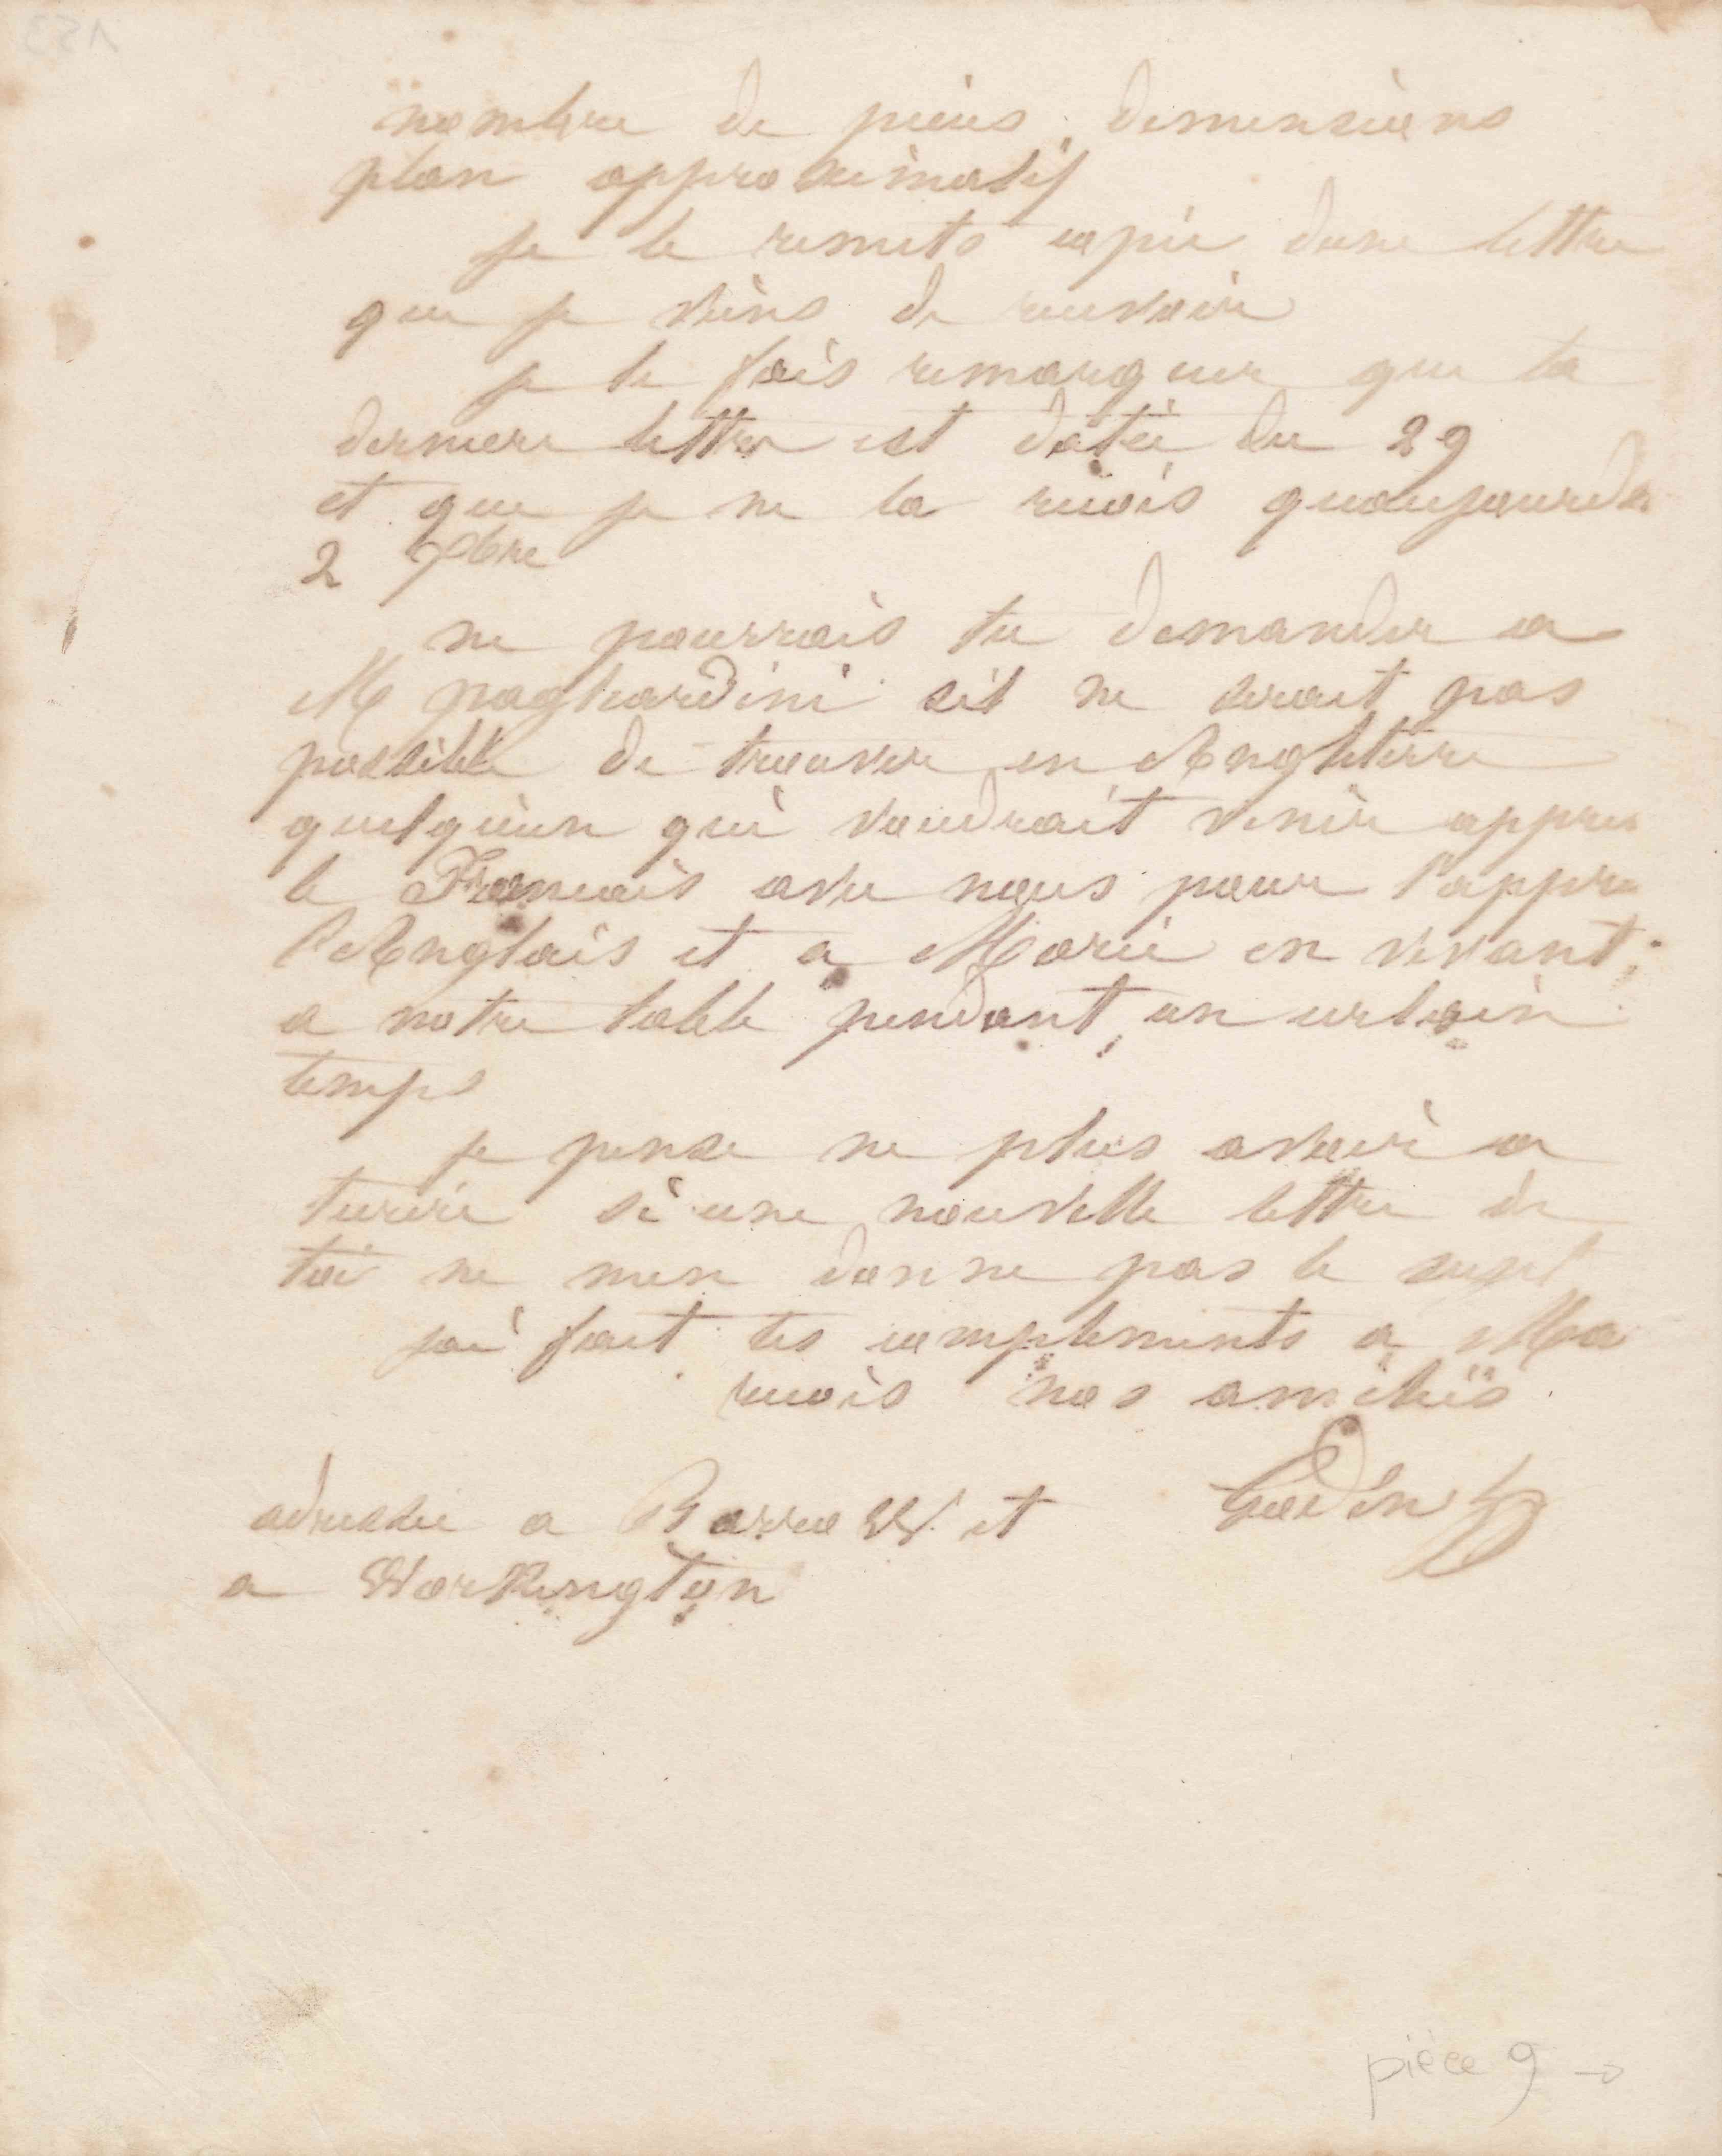 nombre de pièces dimensions
plan approximatif
je te remets copie dune lettre
que je viens de recevoir
je te fais remarquer que ta
derniere lettre est datée du 29
et que je ne la reçois quaujourdh
2 Xbre
ne pourrais tu demander a
M pagliardini sil ne serait pas
possible de trouver en Angleterre
quelquun qui voudrait venir appren
le Francais avec nous pour t'appren
l'Anglais et a Marie en vivant
a notre table pendant un certain
temps
je pense ne plus avoir a
tecrire si une nouvelle lettre de
toi ne men donne pas le sujet
jai fait tes compliments a Ma
recois nos amities
Godin
adressée a Barrow et
a Workington
pièce 9 →